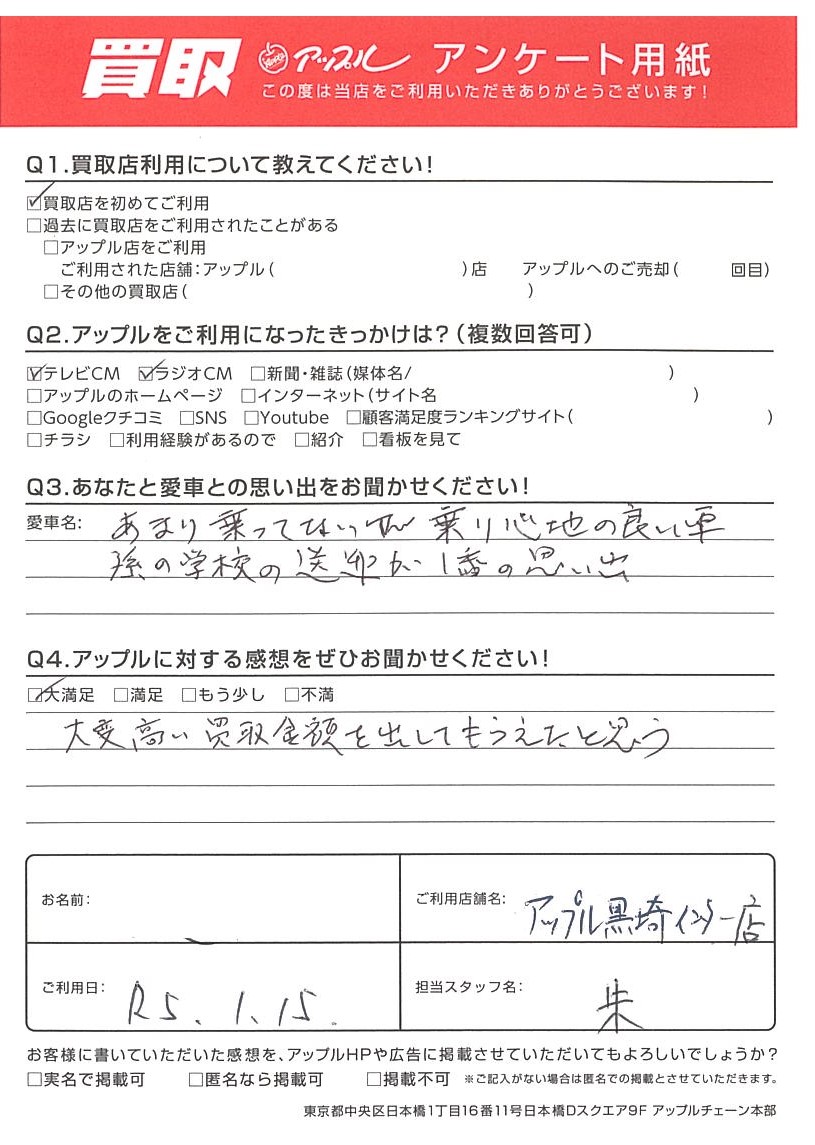 買取 アップル アンケート用紙
この度は当店をご利用いただきありがとうございます!
Q1.買取店利用について教えてください!
☑買取店を初めてご利用
□過去に買取店をご利用されたことがある
□アップル店をご利用
ご利用された店舗:アップル( )店 アップルへのご売却( 回目)
□その他の買取店( )
Q2.アップルをご利用になったきっかけは?(複数回答可)
☑テレビCM ☑ラジオCM □新聞・雑誌(媒体名/ )
□アップルのホームページ □インターネット(サイト名 )
□Googleクチコミ □SNS □Youtube □顧客満足度ランキングサイト( )
□チラシ □利用経験があるので □紹介 □看板を見て
Q3.あなたと愛車との思い出をお聞かせください!
愛車名: あまり乗ってないが 乗り心地の良い車
孫の学校の送迎が1番の思い出
Q4.アップルに対する感想をぜひお聞かせください!
☑大満足 □満足 □もう少し □不満
大変高い買取金額を出してもらえたと思う
お名前: ご利用店舗名: アップル黒埼インター店
ご利用日: R5.1.15. 担当スタッフ名: 朱
お客様に書いていただいた感想を、アップルHPや広告に掲載させていただいてもよろしいでしょうか?
□実名で掲載可 □匿名なら掲載可 □掲載不可 ※ご記入がない場合は匿名での掲載とさせていただきます。
東京都中央区日本橋1丁目16番11号日本橋Dスクエア9F アップルチェーン本部